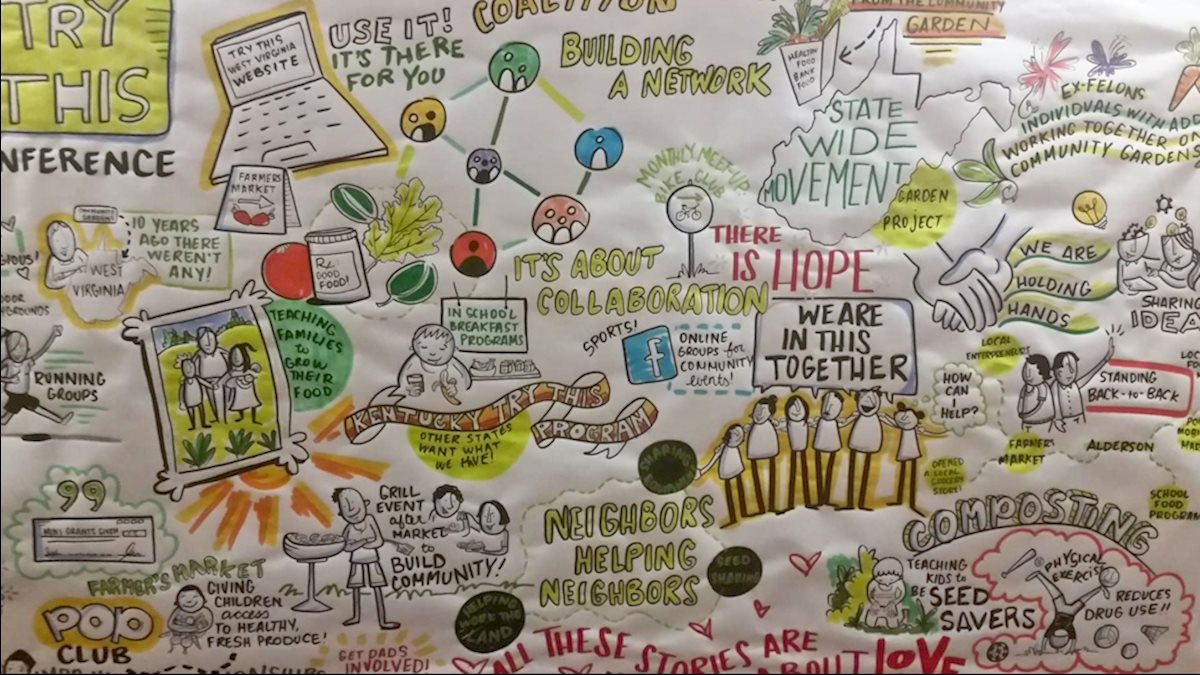 TRY
THIS
NFERENCE
TRY THIS
WEST VIRGINIA
WEBSITE
USE IT!
IT'S THERE
FOR YOU
COALITION
BUILDING
A NETWORK
HEALTHY
FOOD
BANK
FOOD
FROM THE COMMUNITY
GARDEN
STATE
WIDE
MOVEMENT
GARDEN
PROJECT
EX-FELONS
INDIVIDUALS WITH ADD
WORKING TOGETHER O
COMMUNITY GARDENS
FARMERS
MARKET
COMMUNITY
GARDENS
10 YEARS
AGO THERE
WEREN'T
ANY!
WEST
VIRGINIA
Rx:
GOOD
FOOD!
MONTHLY MEET-UP
BIKE CLUB
THERE
IS HOPE
IT'S ABOUT
COLLABORATION
WE ARE
HOLDING
HANDS
SHARING
IDEA
RUNNING
GROUPS
TEACHING
FAMILIES
to
GROW
THEIR
FOOD
IN SCHOOL
BREAKFAST
PROGRAMS
SPORTS!
f
ONLINE
GROUPS for
COMMUNITY
events!
WE ARE
IN THIS
TOGETHER
HOW
CAN
I
HELP?
LOCAL
ENTREPRENEURS
STANDING
BACK-to-BACK
KENTUCKY TRY THIS
PROGRAM
OTHER STATES
WANT WHAT
WE HAVE!
FARMERS
MARKET
ALDERSON
OPENED
A LOCAL
GROCERY
STORE!
SCHOOL
FOOD
PROGRAM
99
MINI GRANTS GIVEN
GRILL
EVENT
after
MARKET
to
BUILD
COMMUNITY!
SHARING
NEIGHBORS
HELPING
NEIGHBORS
SEED
SHARING
HELPING
WORK THE
LAND
COMPOSTING
TEACHING
KIDS to
BE SEED
SAVERS
PHYSICAL
EXERCISE
REDUCES
DRUG USE!!
FARMER'S MARKET
POP
CLUB
GIVING
CHILDREN
access
TO HEALTHY,
FRESH PRODUCE!
GET DADS
INVOLVED!
ALL THESE STORIES ARE
ABOUT LOVE